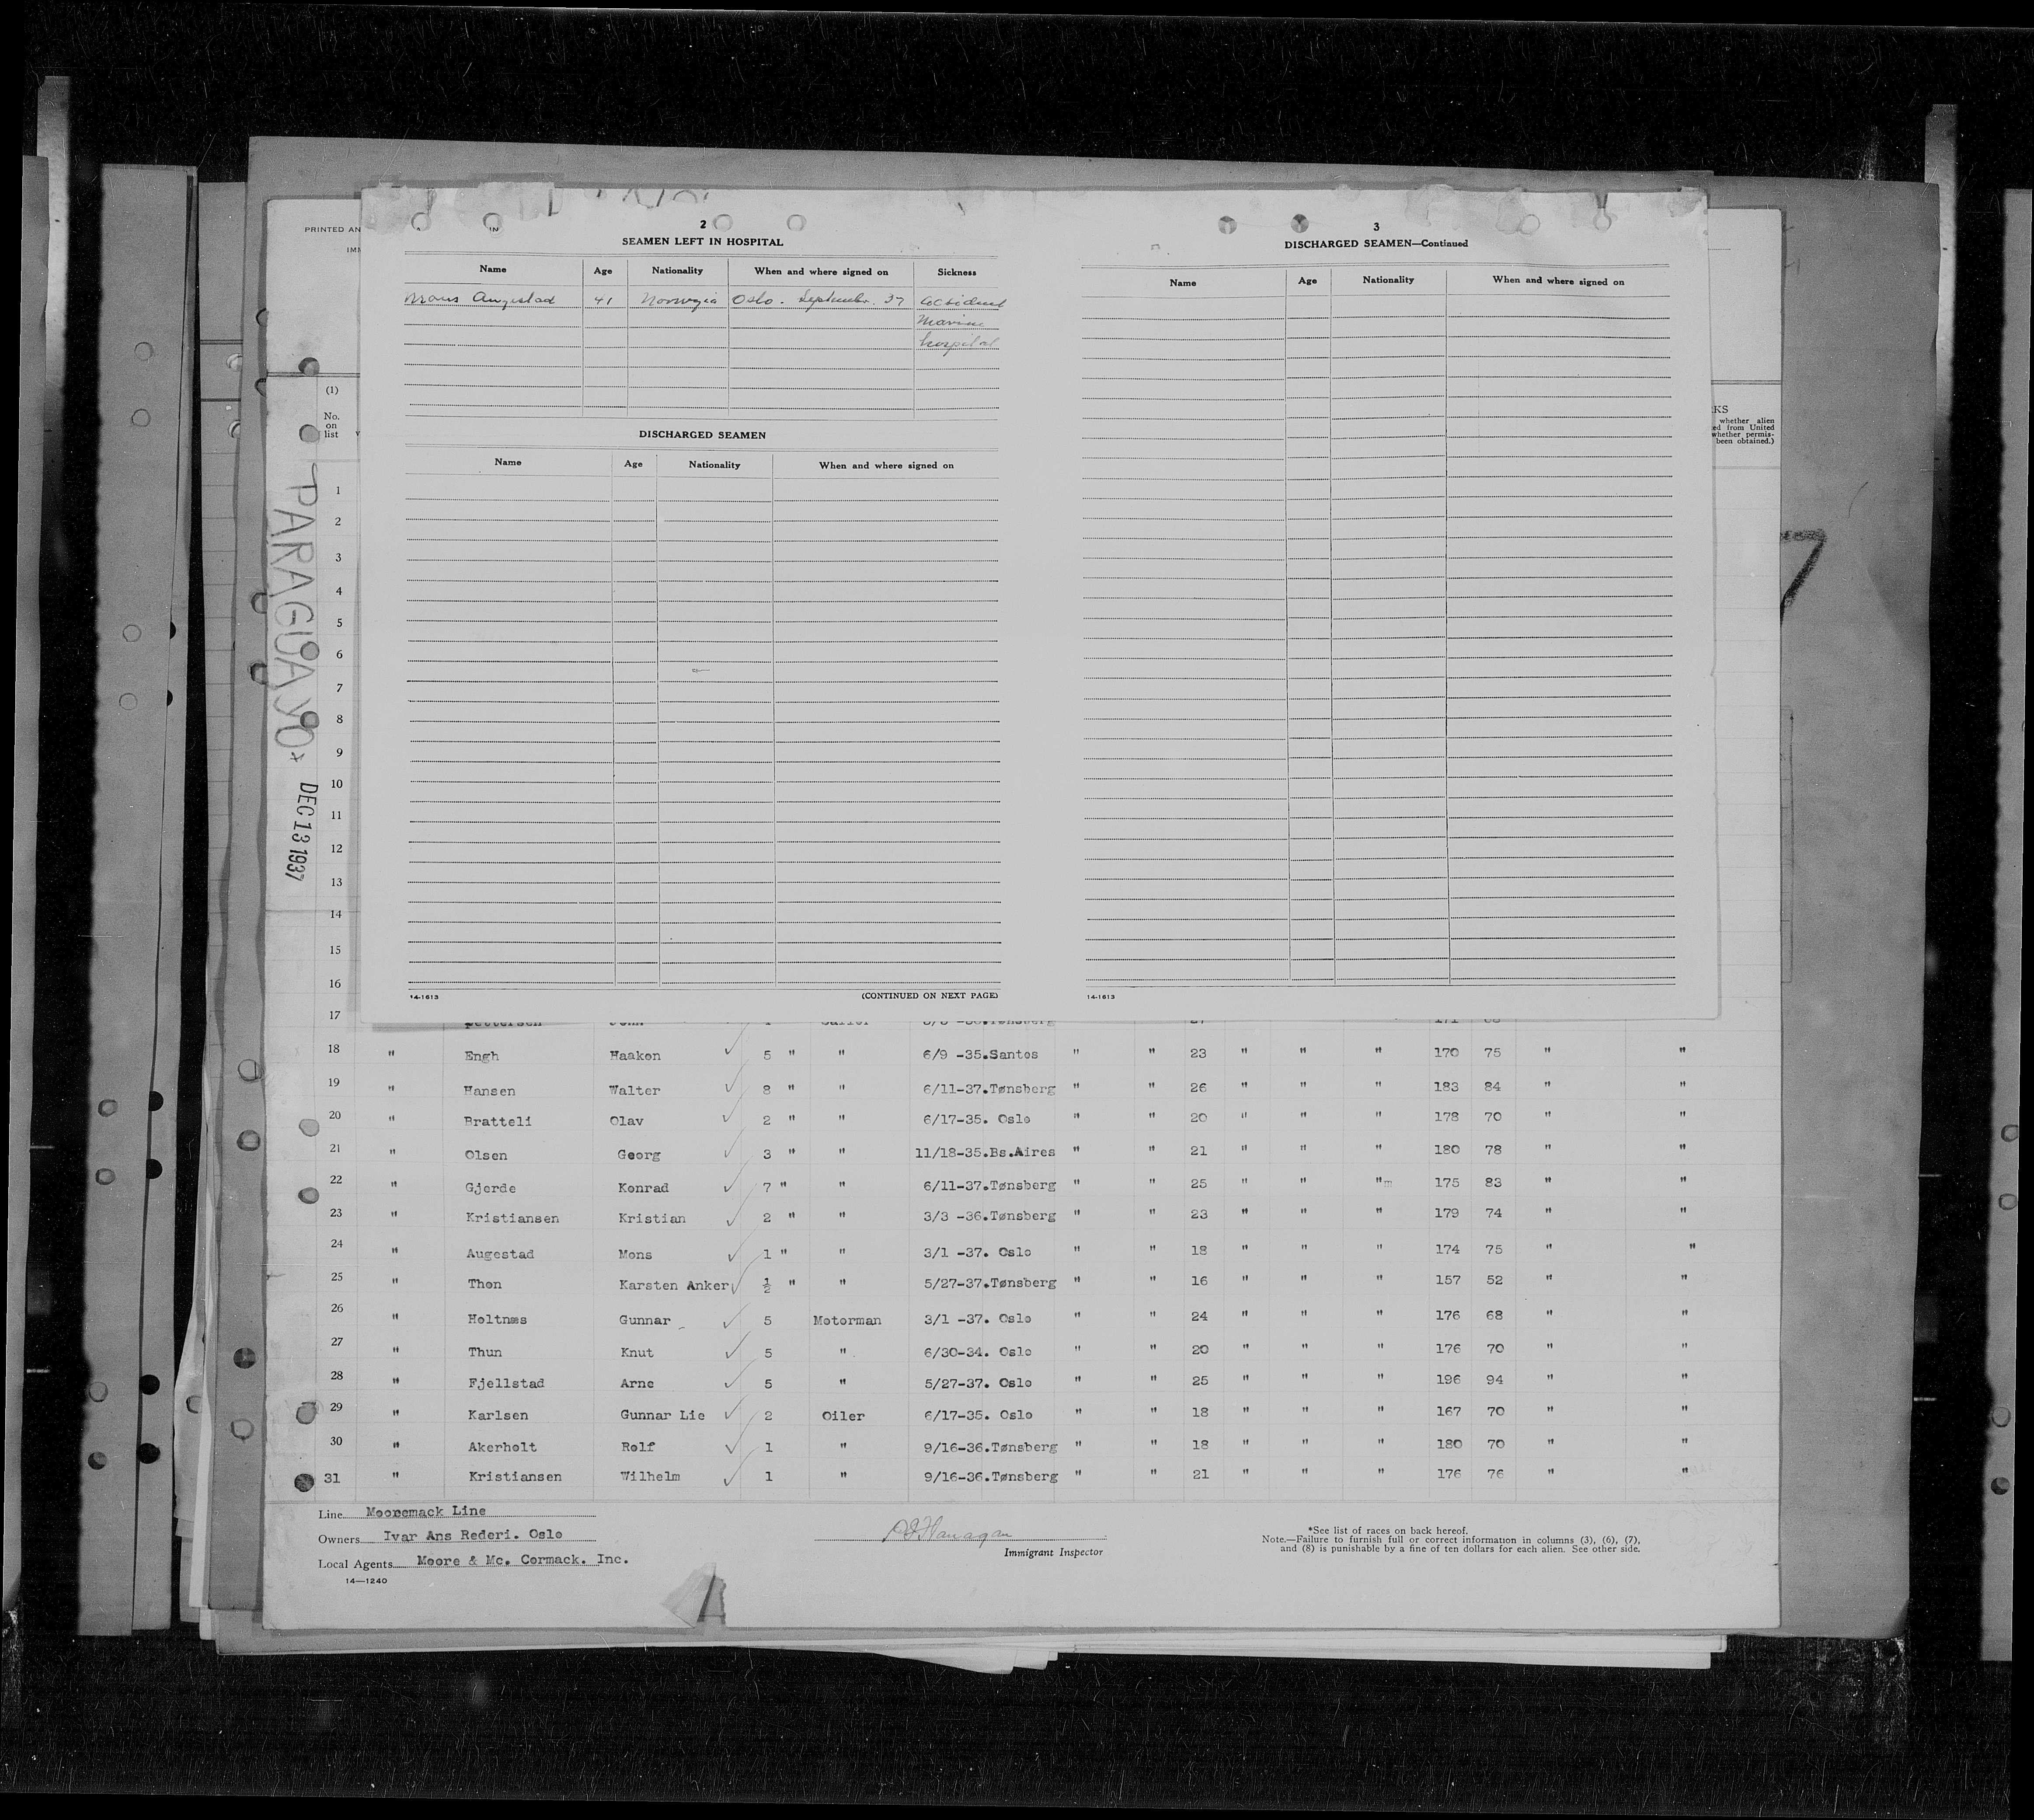 PRINTED AN
IN
IMM
2
SEAMEN LEFT IN HOSPITAL
Name Age Nationality When and where signed on Sickness
Mons Augestad 41 Norwegia Oslo. September. 37 accident
Marine
hospital
DISCHARGED SEAMEN
Name Age Nationality When and where signed on
14-1613 (CONTINUED ON NEXT PAGE)
3
DISCHARGED SEAMEN—Continued
Name Age Nationality When and where signed on
14-1613
KS
whether alien
ed from United
whether permis-
been obtained.)
7
(1)
No.
on
list
PARAGUAY
DEC 13 1937
1
2
3
4
5
6
7
8
9
10
11
12
13
14
15
16
17 Pettersen John
18 " Engh Haakon 5 " " 6/9 -35.Santos " " 23 " " " 170 75 " "
19 " Hansen Walter 8 " " 6/11-37.Tønsberg " " 26 " " " 183 84 " "
20 " Bratteli Olav 2 " " 6/17-35. Oslo " " 20 " " " 178 70 " "
21 " Olsen Georg 3 " " 11/18-35.Bs.Aires " " 21 " " " 180 78 " "
22 " Gjerde Konrad 7 " " 6/11-37.Tønsberg " " 25 " " "m 175 83 " "
23 " Kristiansen Kristian 2 " " 3/3 -36.Tønsberg " " 23 " " " 179 74 " "
24 " Augestad Mons 1 " " 3/1 -37. Oslo " " 18 " " " 174 75 " "
25 " Thon Karsten Anker ½ " " 5/27-37.Tønsberg " " 16 " " " 157 52 " "
26 " Holtnæs Gunnar 5 Motorman 3/1 -37. Oslo " " 24 " " " 176 68 " "
27 " Thun Knut 5 " 6/30-34. Oslo " " 20 " " " 176 70 " "
28 " Fjellstad Arne 5 " 5/27-37. Oslo " " 25 " " " 196 94 " "
29 " Karlsen Gunnar Lie 2 Oiler 6/17-35. Oslo " " 18 " " " 167 70 " "
30 " Akerholt Rolf 1 " 9/16-36.Tønsberg " " 18 " " " 180 70 " "
31 " Kristiansen Wilhelm 1 " 9/16-36.Tønsberg " " 21 " " " 176 76 " "
Line Mooremack Line
Owners Ivar Ans Rederi. Oslo
Local Agents Moore & Mc. Cormack. Inc.
14—1240
Flanagan
Immigrant Inspector
*See list of races on back hereof.
Note.—Failure to furnish full or correct information in columns (3), (6), (7),
and (8) is punishable by a fine of ten dollars for each alien. See other side.